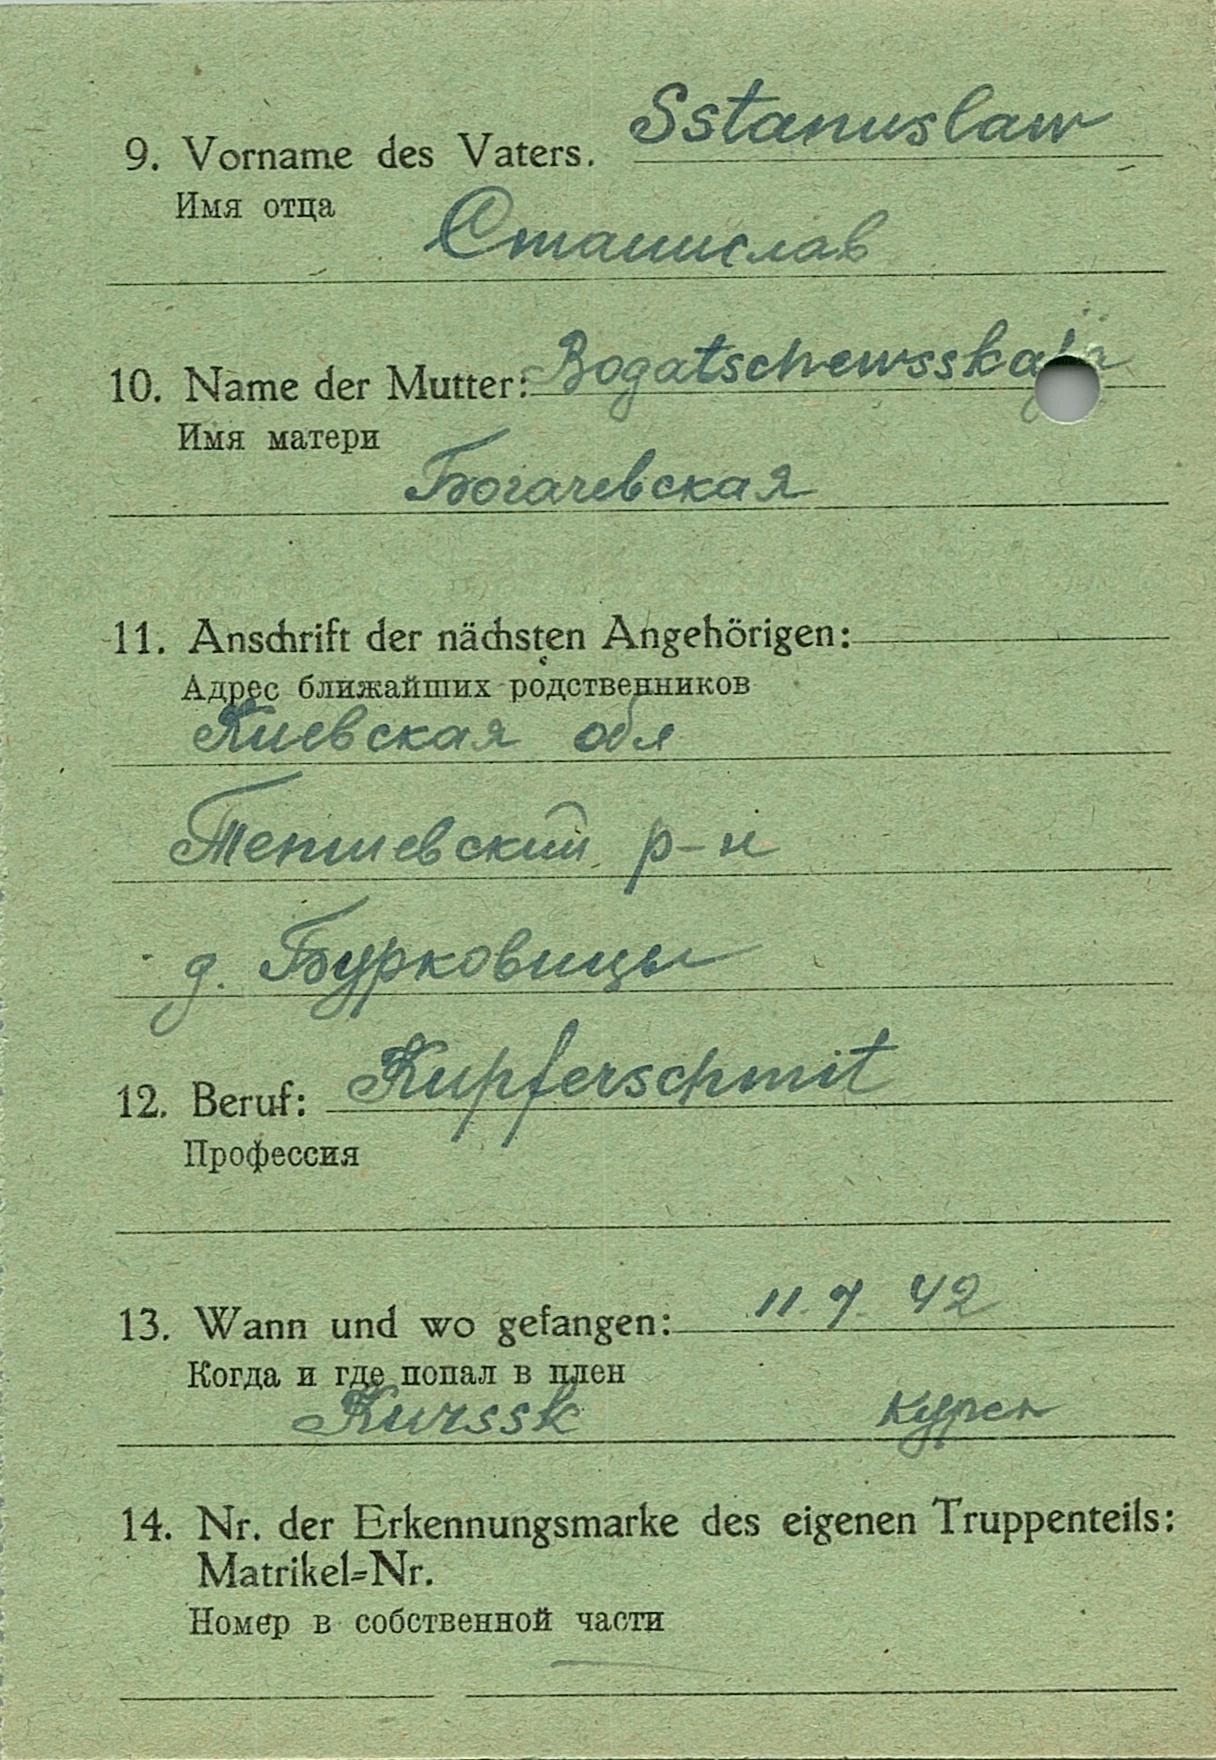 9. Vorname des Vaters. Sstanuslaw
Имя отца
Станислав
10. Name der Mutter: Bogatschewsskaja
Имя матери
Богачевская
11. Anschrift der nächsten Angehörigen:
Адрес ближайших родственников
Киевская обл
Тепиевский р-н
д. Бурковицы
12. Beruf: Kupferschmit
Профессия
13. Wann und wo gefangen: 11.7.42
Когда и где попал в плен
Kurssk Курск
14. Nr. der Erkennungsmarke des eigenen Truppenteils:
Matrikel-Nr.
Номер в собственной части